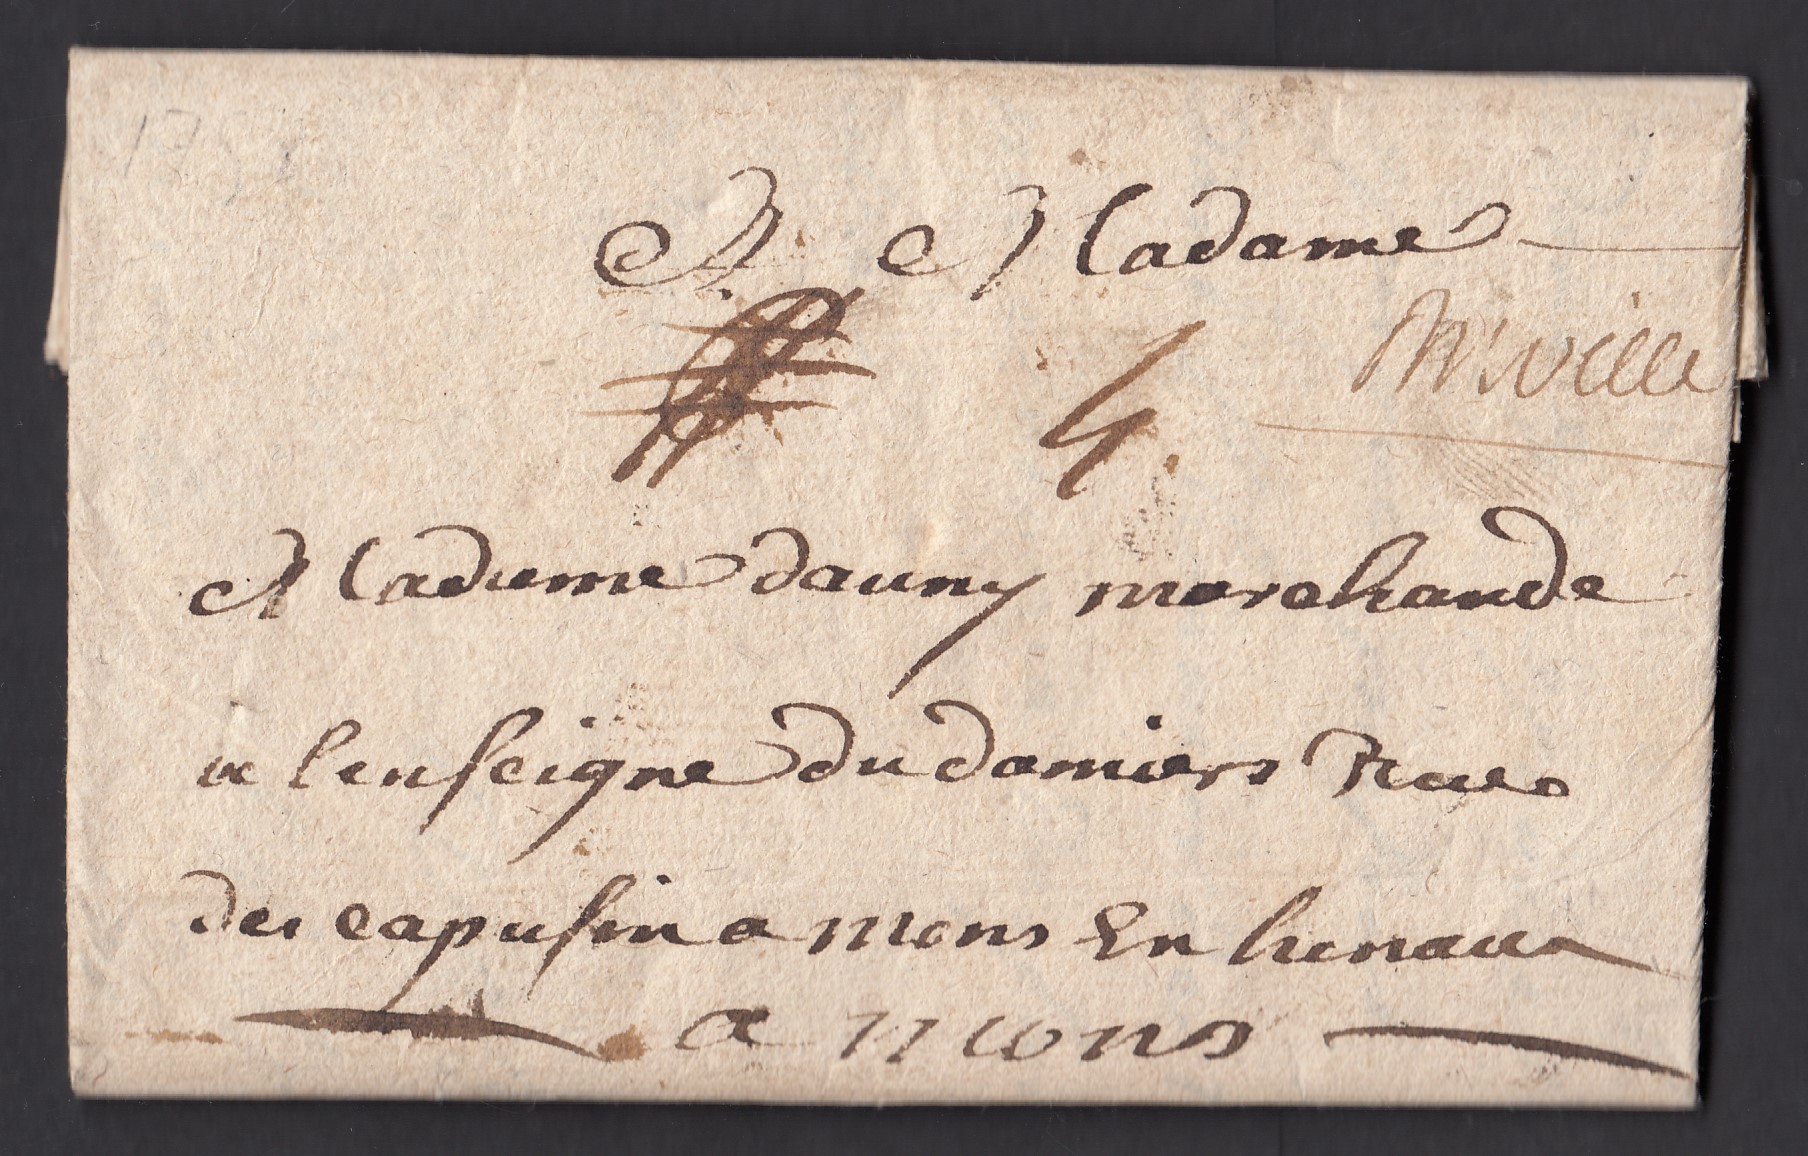 A Madame
4
Niville
Madame dauny marchande
a lenseigne du damiers Rue
des capusin a mons En henaux
a mons